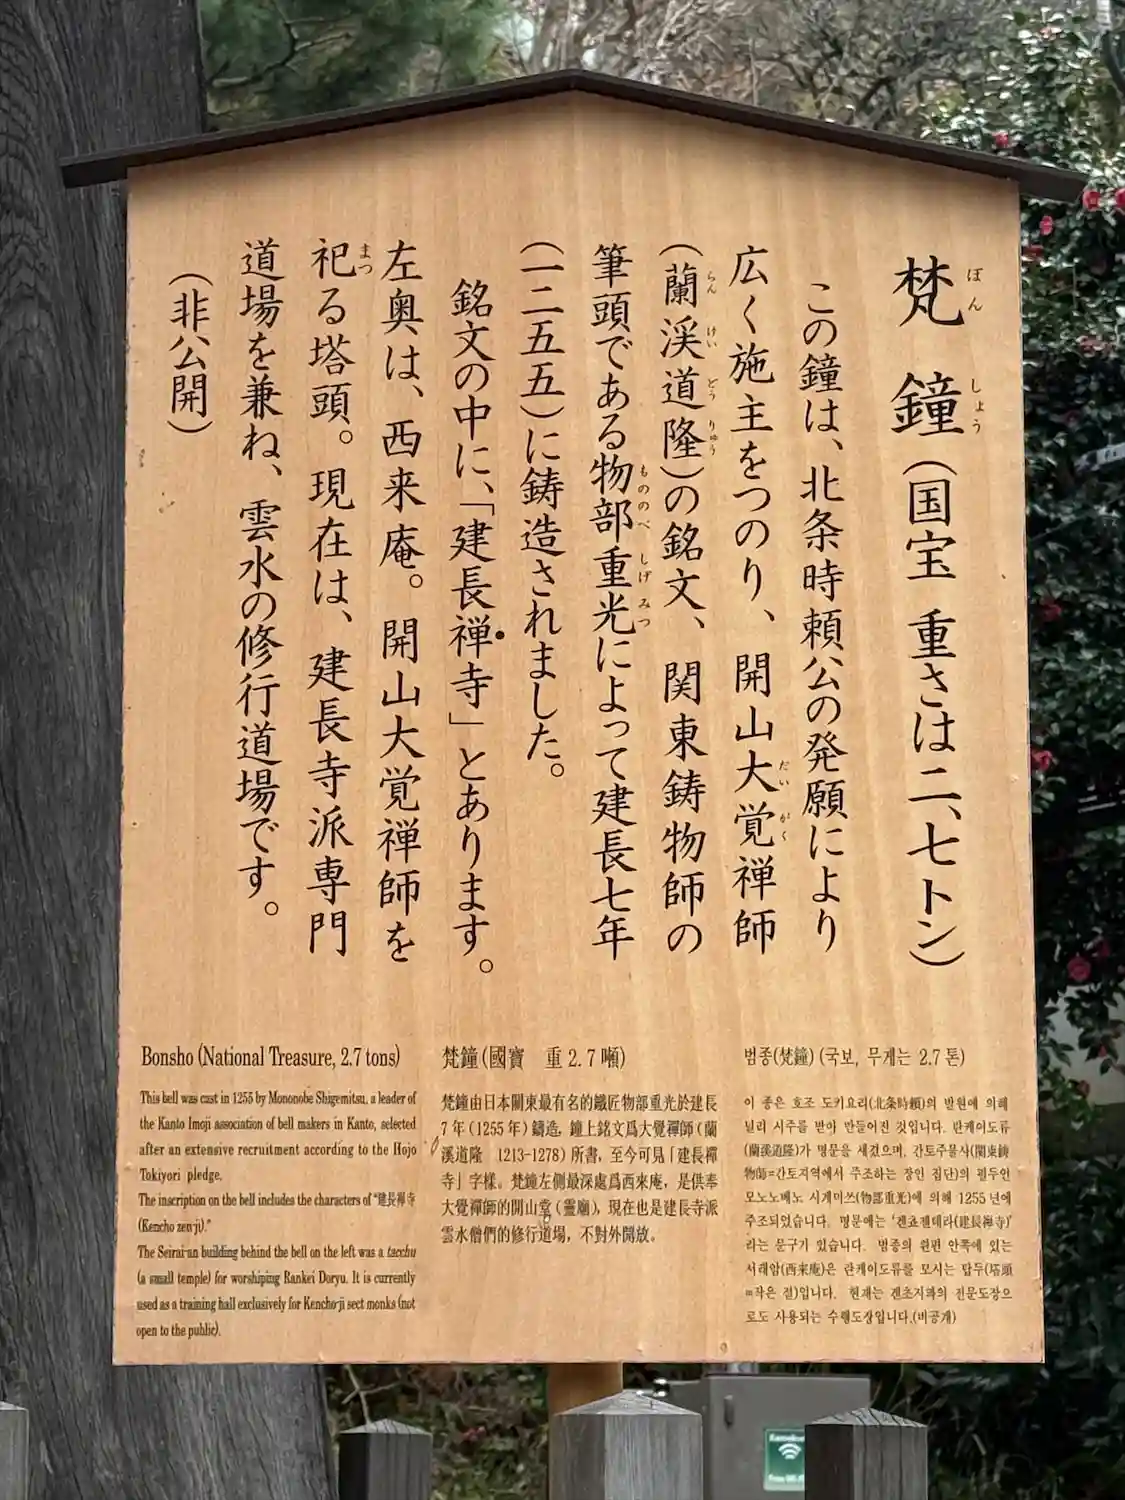 梵鐘（国宝 重さは二、七トン）
ぼん しょう
この鐘は、北条時頼公の発願により
広く施主をつのり、開山大覚禅師
だい がく
（蘭渓道隆）の銘文、関東鋳物師の
らん けい どう りゅう
筆頭である物部重光によって建長七年
もののべ しげ みつ
（一二五五）に鋳造されました。
銘文の中に、「建長禅寺」とあります。
左奥は、西来庵。開山大覚禅師を
祀る塔頭。現在は、建長寺派専門
まつ
道場を兼ね、雲水の修行道場です。
（非公開）
Bonsho (National Treasure, 2.7 tons)
This bell was cast in 1255 by Mononobe Shigemitsu, a leader of
the Kanto Imoji association of bell makers in Kanto, selected
after an extensive recruitment according to the Hojo
Tokiyori pledge.
The inscription on the bell includes the characters of "建長禅寺
(Kencho zen-ji)."
The Seirai-an building behind the bell on the left was a tacchu
(a small temple) for worshiping Rankei Doryu. It is currently
used as a training hall exclusively for Kencho-ji sect monks (not
open to the public).
梵鐘(國寶 重 2.7 噸)
梵鐘由日本關東最有名的鐵匠物部重光於建長
7 年 (1255 年) 鑄造，鐘上銘文爲大覺禪師 (蘭
溪道隆 1213-1278) 所書，至今可見「建長禪
寺」字樣。梵鐘左側最深處爲西來庵，是供奉
大覺禪師的開山堂 (靈廟)，現在也是建長寺派
雲水僧們的修行道場，不對外開放。
범종(梵鐘) (국보, 무게는 2.7 톤)
이 종은 호조 도키요리(北条時頼)의 발원에 의해
널리 시주를 받아 만들어진 것입니다. 란케이도류
(蘭溪道隆)가 명문을 새겼으며, 간토주물사(関東鋳
物師=간토지역에서 주조하는 장인 집단)의 필두인
모노노베노 시게미쓰(物部重光)에 의해 1255 년에
주조되었습니다. 명문에는 '겐쵸젠데라(建長禅寺)'
라는 문구가 있습니다. 범종의 왼편 안쪽에 있는
서래암(西来庵)은 란케이도류를 모시는 탑두(塔頭
=작은 절)입니다. 현재는 겐초지파의 전문도장으
로도 사용되는 수행도장입니다.(비공개)